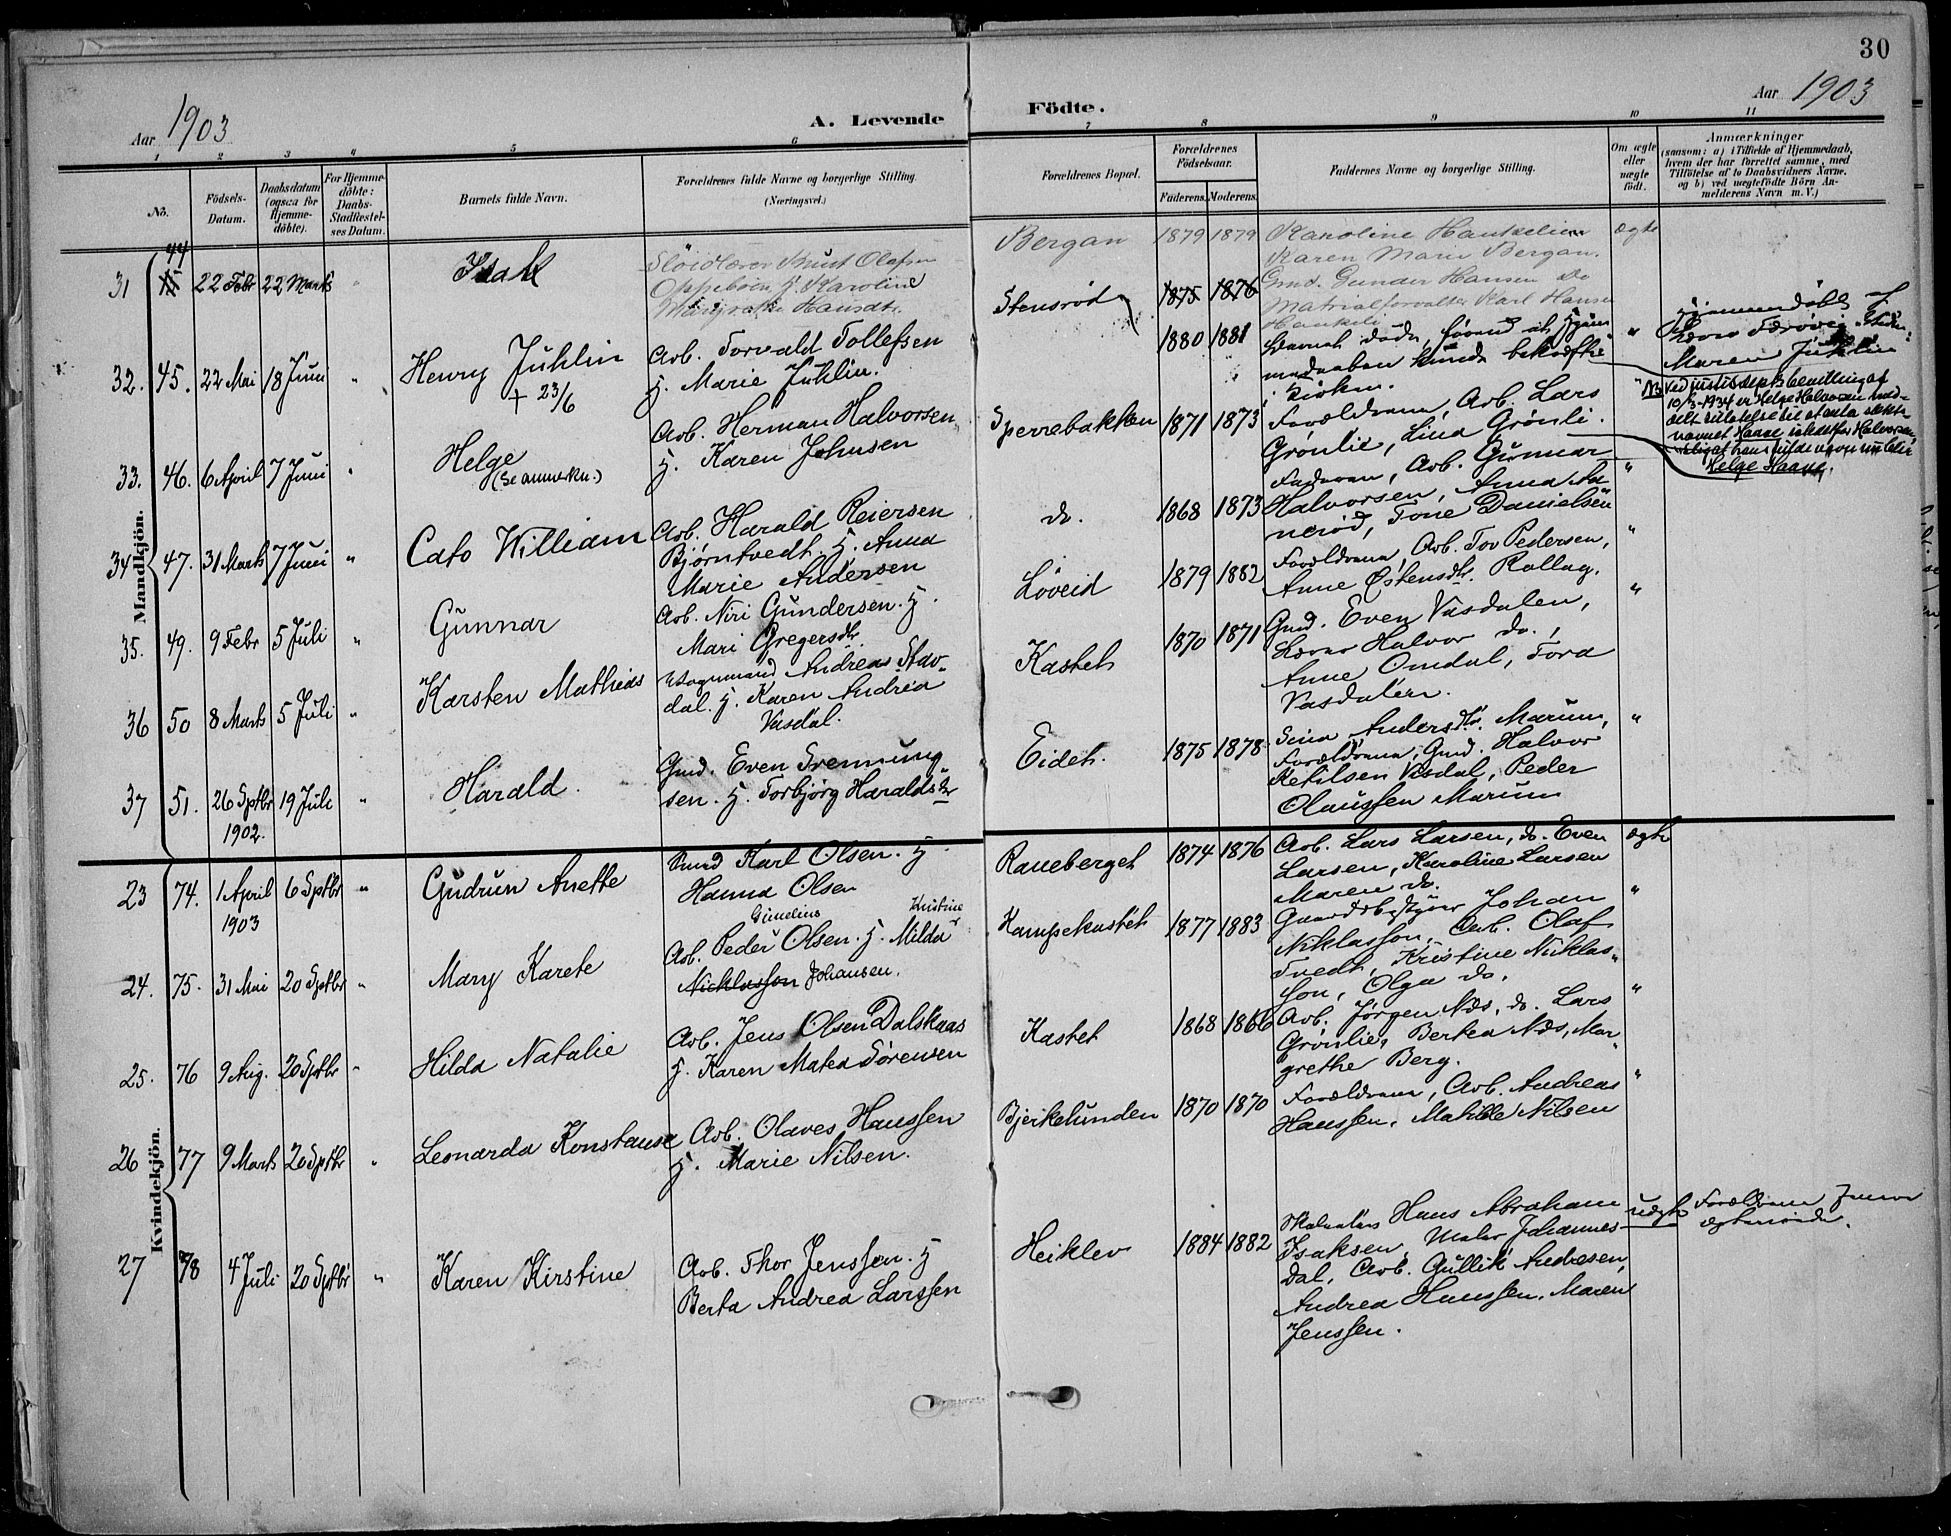 30
Aar 1903
A. Levende Födte.
Aar 1903
1 2 3 4 5 6 7 8 9 10 11
No.
Födsels-Datum.
Daabsdatum (ogsaa for Hjemme-döbte).
For Hjemme-döbte: Daabs-Stadfæstel-ses Datum.
Barnets fulde Navn.
Forældrenes fulde Navne og borgerlige Stilling.
(Næringsvei.)
Forældrenes Bopæl.
Forældrenes Födselsaar.
Faderens. Moderens.
Faddernes Navne og borgerlige Stilling.
Om ægte eller uægte födt.
Anmærkninger
(saasom: a) i Tilfælde af Hjemmedaab,
hvem der har forrettet samme, med
Tilföielse af to Daabsvidners Navne.
og b) ved uægtefödte Börn An-
melderens Navn m. V.)
Mandkjön.
31 44 22 Febr 22 Marts " Isak
Slöidlærer Knut Olafsen
Oppeboen g. Karoline
Margrethe Hansdtr.
Bergan 1879 1879
Karoline Haukelien
Karen Marie Bergan.
Gmd. Gunder Hansen do
Matrialforvalter Karl Hansen
Haukeli
ægte
32. 45. 22 Mai 18 Juni " Henry Juhlin
+ 23/6
Arb. Torvald Tollefsen
g. Marie Juhlin.
Stensrød 1875 1876
1880 1881
Barnet døde, førend at hjem
medaaben kunde bekræftes
i Kirken.
"
Hjemmedøbt af
Maren Juhlin
33. 46. 6 April 7 Juni " Helge
(Se anmerkn.)
Arb. Herman Halvorsen
g. Karen Johnsen
Sperrebakken 1871 1873
Forældrene, Arb. Lars
Grønlie, Lina Grønli.
"
NB Ved justisdepts bevilling af
10/3-1934 er Helge Halvorsen med-
delt tillatelse til at anta slekts-
navnet Haave istedetfor Halvorsen
sligat hans fulde navn nu blir
Helge Haave.
34 47. 31 Marts 7 Juni " Cato William
Arb. Harald Reiersen
Bjørntvedt g. Anna
Marie Andersen
do. 1868 1873
Faderen, Arb. Gunnar
Halvorsen, Anna Aa
nerød, Tone Danielsen
"
35. 49. 9 Febr 5 Juli " Gunnar
Arb. Niri Gundersen. g.
Mari Gregersdtr.
Løveid 1879 1882
Forældrene, Arb. Tov Pedersen,
Anne Østensdtr. Rollag.
"
36 50 8 Marts 5 Juli " Karsten Mathias
Vognmand Andreas Stav-
dal. g. Karen Andrea
Vasdal.
Kastet 1870 1871
Gmd. Even Vasdalen,
Lærer Halvor do.,
Anne Omdal, Tora
Vasdalen.
"
37 51. 26 Sptbr 1902. 19 Juli " Harald.
Gmd. Even Trennung
sen. g. Torbjørg Haraldsdtr
Eidet. 1875 1878
Sina Andersdtr. Marum,
Forældrene, Gmd. Halvor
Ketilsen Vasdal, Peder
Olaussen Marum
"
Kvindekjön.
23 74. 1 April 1903 6 Sptbr " Gudrun Anette
Gmd Karl Olsen. g
Hanna Olsen
Raneberget 1874 1876
Arb. Lars Larsen, do. Even
Larsen, Karoline Larsen
Maren do.
ægte
24. 75. 31 Mai 20 Sptbr " Mary Karete
Gimelius Kristine
Arb. Peder Olsen. g. Milda
Nicklasson Johansen.
Kampekastet 1877 1883
Gaardsbestyrer Johan
Niklasson, Arb. Olaf
Tvedt, Kristine Niklas-
son, Olga do.
"
25. 76 9 Aug. 20 Sptbr " Hilda Natalie
Arb. Jens Olsen Dalskaas
g. Karen Matea Sørensen
Kastet 1868 1866
Arb. Jørgen Næs, do. Lars
Grønlie, Bertea Næs, Mar-
grethe Berg.
"
26 77 9 Marts 20 Sptbr " Leonarda Konstanse
Arb. Olaves Hanssen
g. Marie Nilsen.
Bjerkelunden 1870 1870
Forældrene, Arb. Andreas
Hanssen, Mathilde Nilsen
"
27 78 4 Juli 20 Sptbr " Karen Kirstine
Arb. Thor Jenssen. g
Berta Andrea Larssen
Heiklev 1884 1882
Hans Abraham
Isaksen, Maler Johannes
Dal, Arb. Gullik Andresen,
Andrea Hanssen, Maren
Jenssen.
uægte
Forældrene